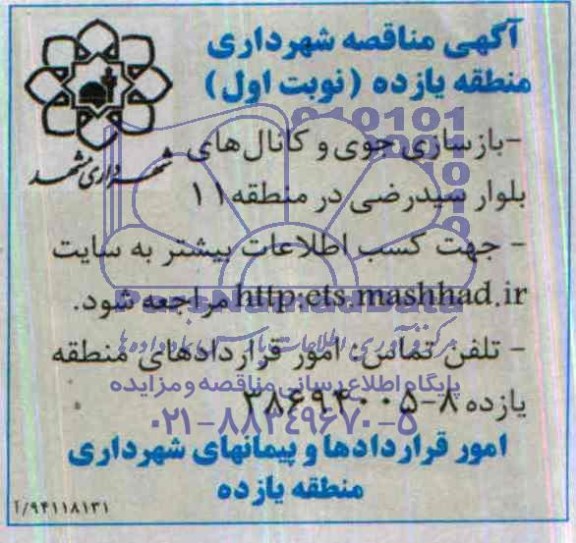 آگهی مناقصه شهرداری
منطقه یازده (نوبت اول)
شهرداری مشهد
-بازسازی جوی و کانال‌های
بلوار سیدرضی در منطقه ۱۱
- جهت کسب اطلاعات بیشتر به سایت
http:ets.mashhad.ir مراجعه شود.
- تلفن تماس: امور قراردادهای منطقه
پایگاه اطلاع رسانی مناقصه و مزایده
یازده ۸-۳۸۶۹۴۰۰۵
۰۲۱-۸۸۳۴۹۶۷۰-۵
امور قراردادها و پیمانهای شهرداری
منطقه یازده
۹۴۱۱۸۱۳۱/آ